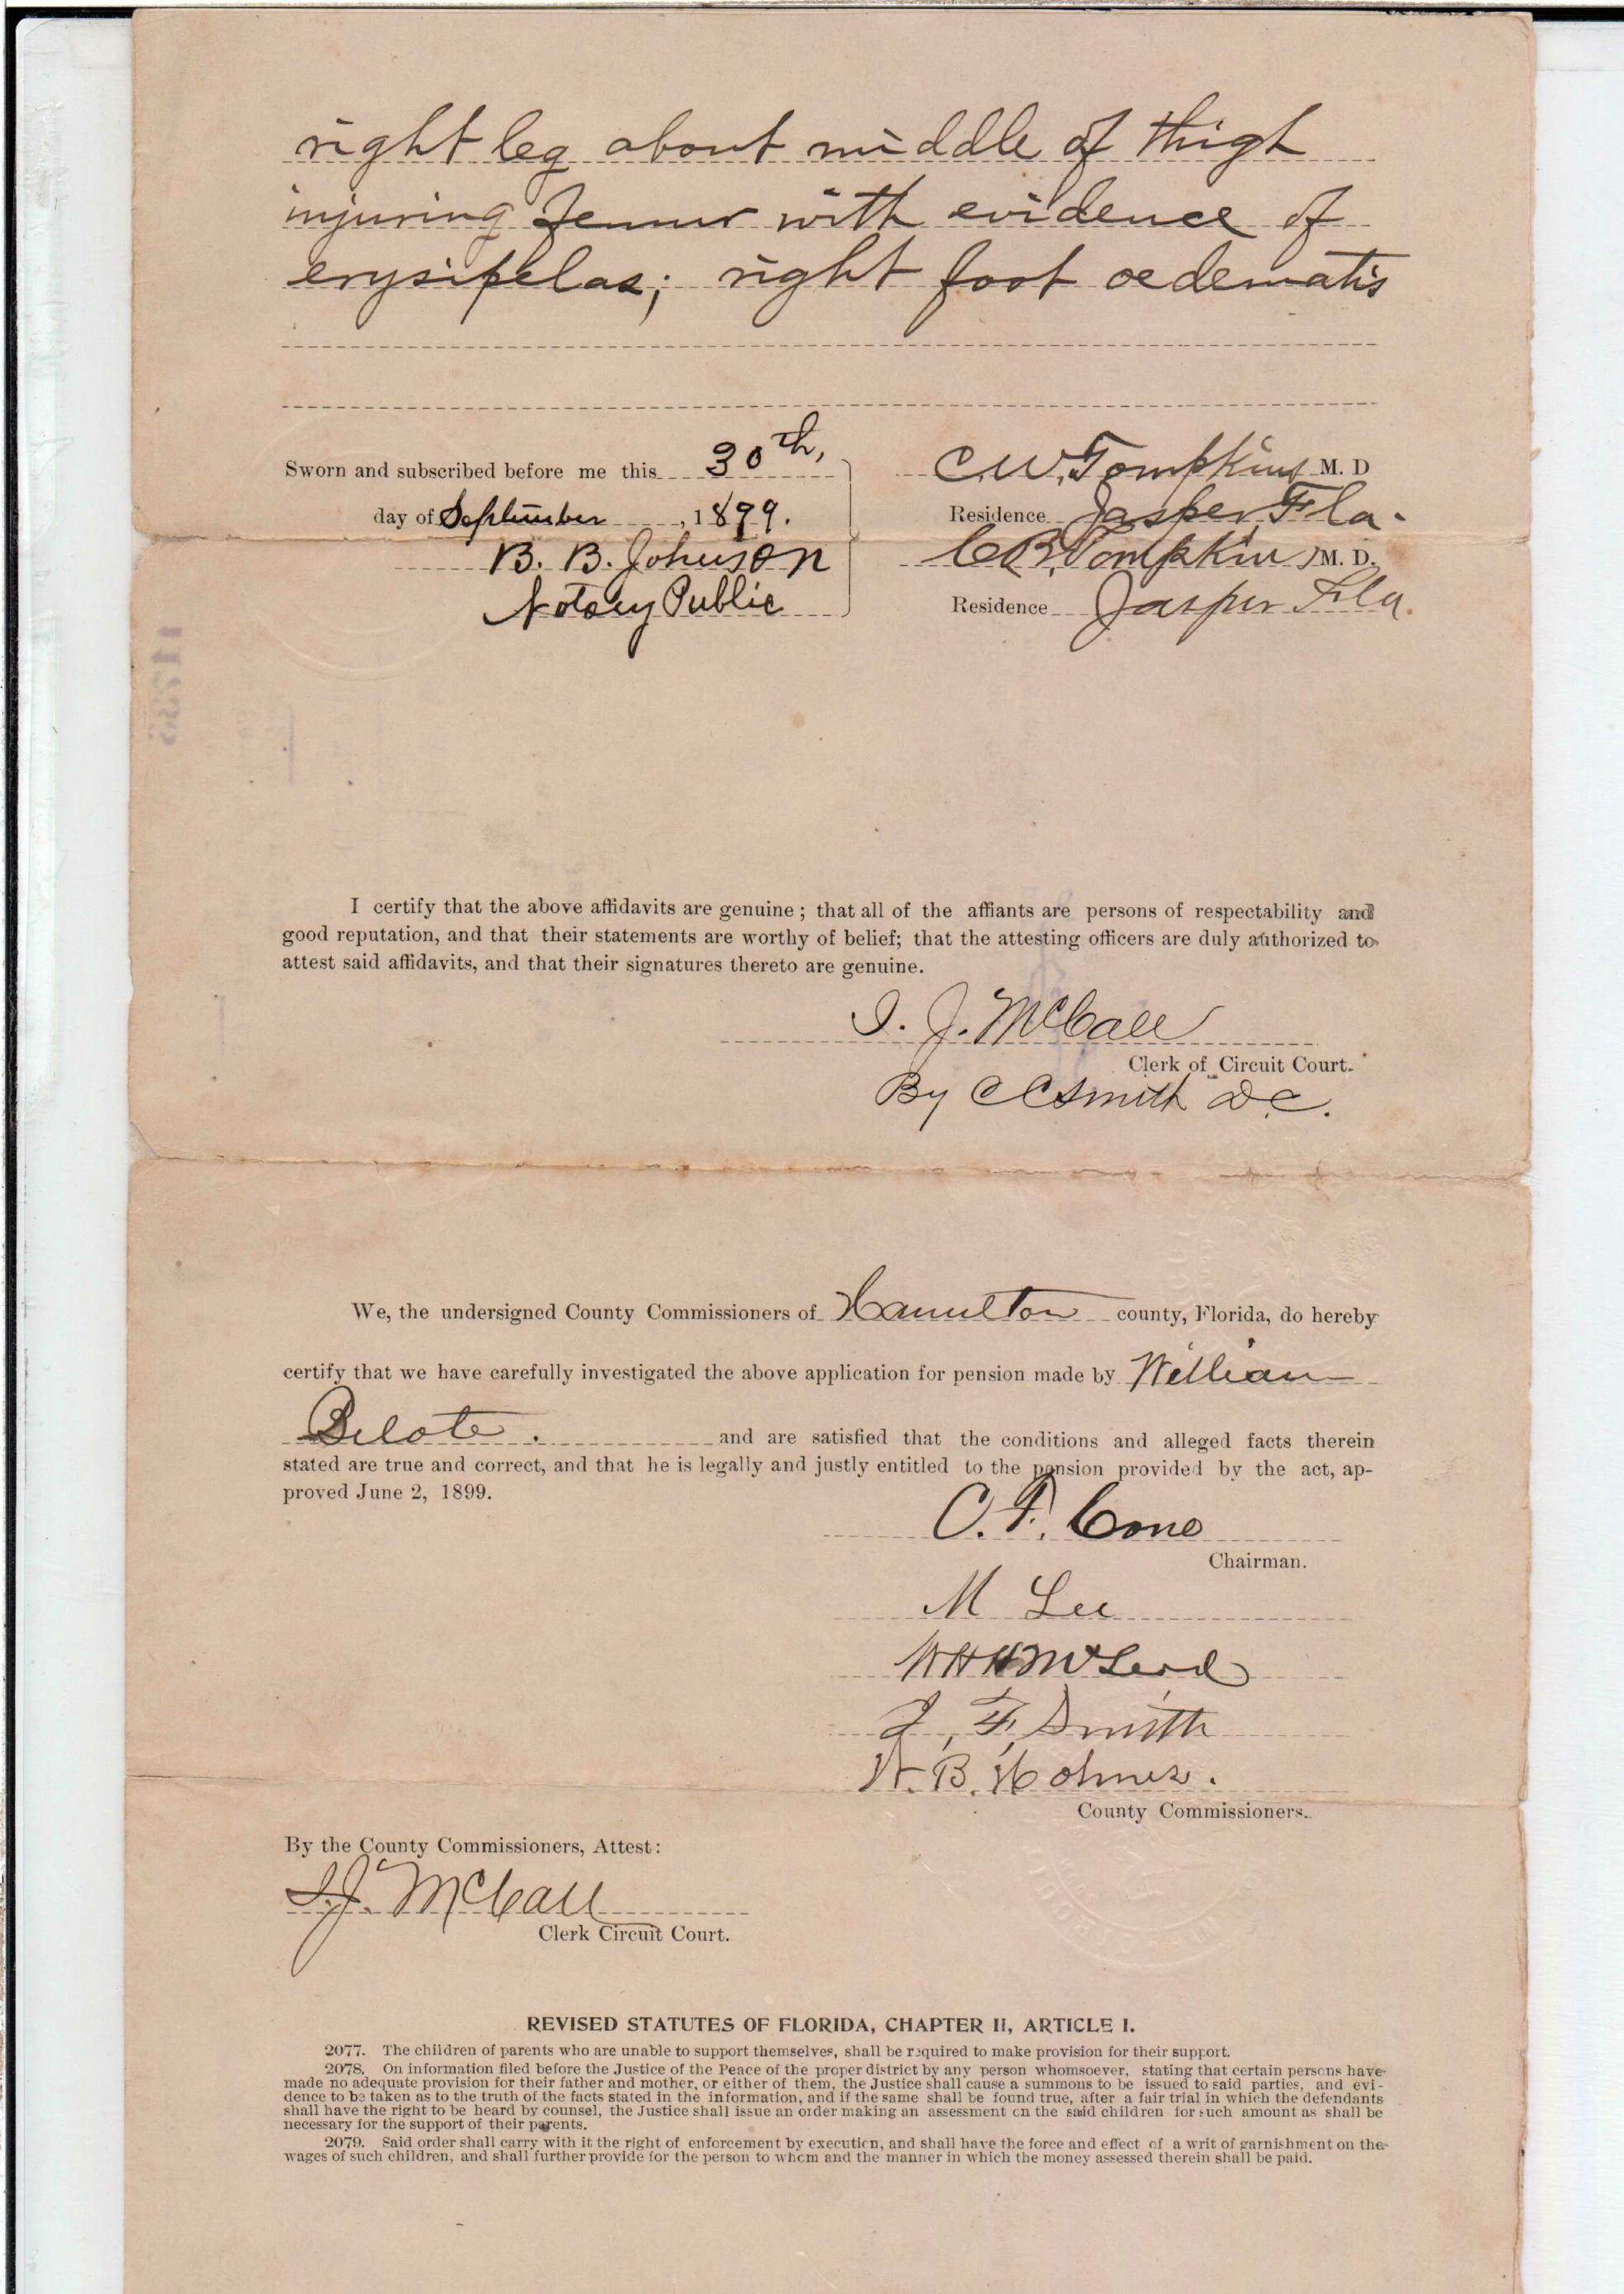 right leg about middle of thigh
injuring femur with evidence of
erysipelas; right foot oedematis
Sworn and subscribed before me this 30th,
day of September, 1899.
B. B. Johnson
Notary Public
C. W. Tompkins M. D
Residence Jasper, Fla.
C B Tompkins M. D.
Residence Jasper Fla.
I certify that the above affidavits are genuine; that all of the affiants are persons of respectability and
good reputation, and that their statements are worthy of belief; that the attesting officers are duly authorized to
attest said affidavits, and that their signatures thereto are genuine.
I. J. McCall
Clerk of Circuit Court.
By C C Smith D.C.
We, the undersigned County Commissioners of Hamilton county, Florida, do hereby
certify that we have carefully investigated the above application for pension made by William
Belote. and are satisfied that the conditions and alleged facts therein
stated are true and correct, and that he is legally and justly entitled to the pension provided by the act, ap-
proved June 2, 1899.
C. F. Cone
Chairman.
M Lee
W H H McLeod
J, F, Smith
W. B. Holmes.
County Commissioners.
By the County Commissioners, Attest:
I. J. McCall
Clerk Circuit Court.
REVISED STATUTES OF FLORIDA, CHAPTER II, ARTICLE I.
2077. The children of parents who are unable to support themselves, shall be required to make provision for their support.
2078. On information filed before the Justice of the Peace of the proper district by any person whomsoever, stating that certain persons have
made no adequate provision for their father and mother, or either of them, the Justice shall cause a summons to be issued to said parties, and evi-
dence to be taken as to the truth of the facts stated in the information, and if the same shall be found true, after a fair trial in which the defendants
shall have the right to be heard by counsel, the Justice shall issue an order making an assessment on the said children for such amount as shall be
necessary for the support of their parents.
2079. Said order shall carry with it the right of enforcement by execution, and shall have the force and effect of a writ of garnishment on the
wages of such children, and shall further provide for the person to whom and the manner in which the money assessed therein shall be paid.